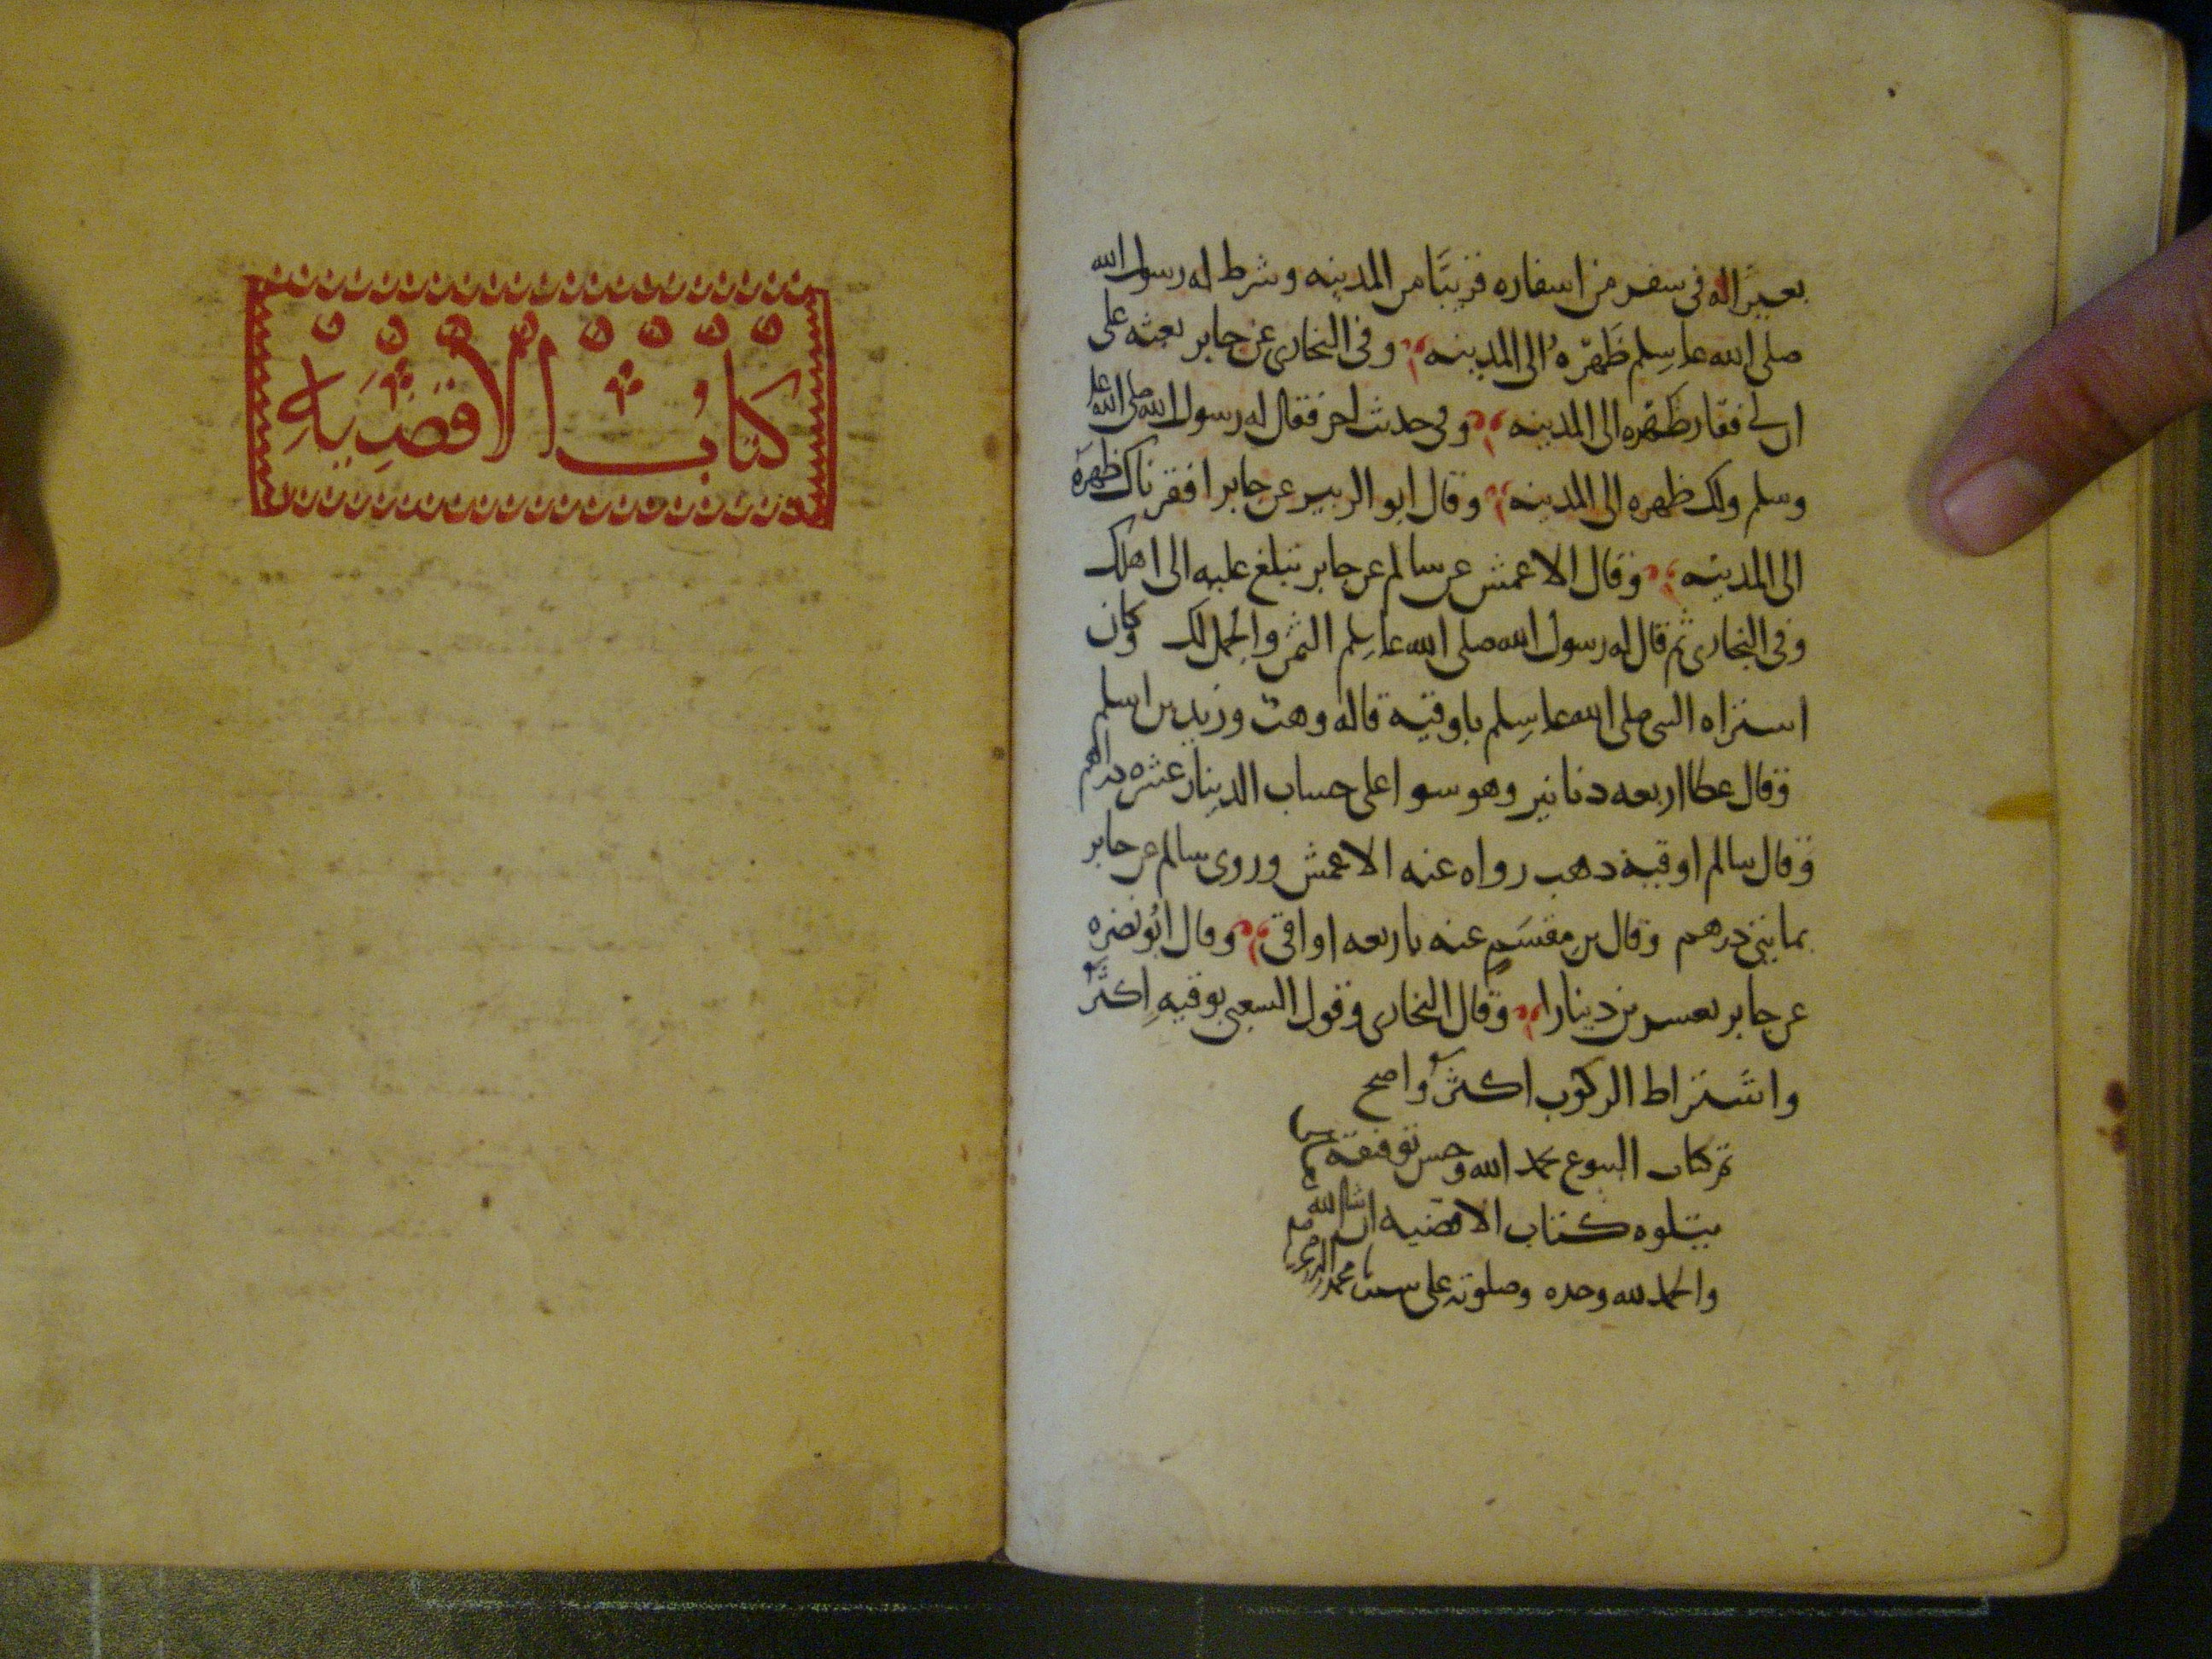 بعيرًا له في سفر من اسفاره قريبًا من المدينه وشرط له رسول الله
صلى الله عليه وسلم ظَهرَهُ الى المدينه وفى البخارى عن جابر بعته على
ان لى فقار ظهره الى المدينه وفى حديث اخر فقال له رسول الله صلى الله عليه
وسلم ولك ظهره الى المدينه وقال ابو الزبير عن جابر افقرناك ظهرَه
الى المدينه وقال الاعمش عن سالم عن جابر تبلغ عليه الى اهلك
وفى البخارى ثم قال له رسول الله صلى الله عليه وسلم الثمن والجمل لك وكان
اشتراه النبي صلى الله عليه وسلم باوقيه قاله وهب وزيد بن اسلم
وقال عطا اربعه دنانير وهو سوا على حساب الدينار عشره دراهم
وقال سالم اوقية دهب رواه عنه الاعمش وروى سالم عن جابر
بمايتى درهم وقال بن مِقسَمٍ عنه باربعه اواقى وقال ابُو نضره
عن جابر بعسرين دينارا وقال البخارى وقول الشعبى بوقيه اكثَرُ
واشتراط الركوب اكثرُ واصح
تم كتاب البيوع بحمد الله وحسن توفيقه
يتلوه كتاب الاقضيه ان شا الله
والحمد لله وحده وصلوته على سيدنا محمد
كتابُ الاقضِيَةِ